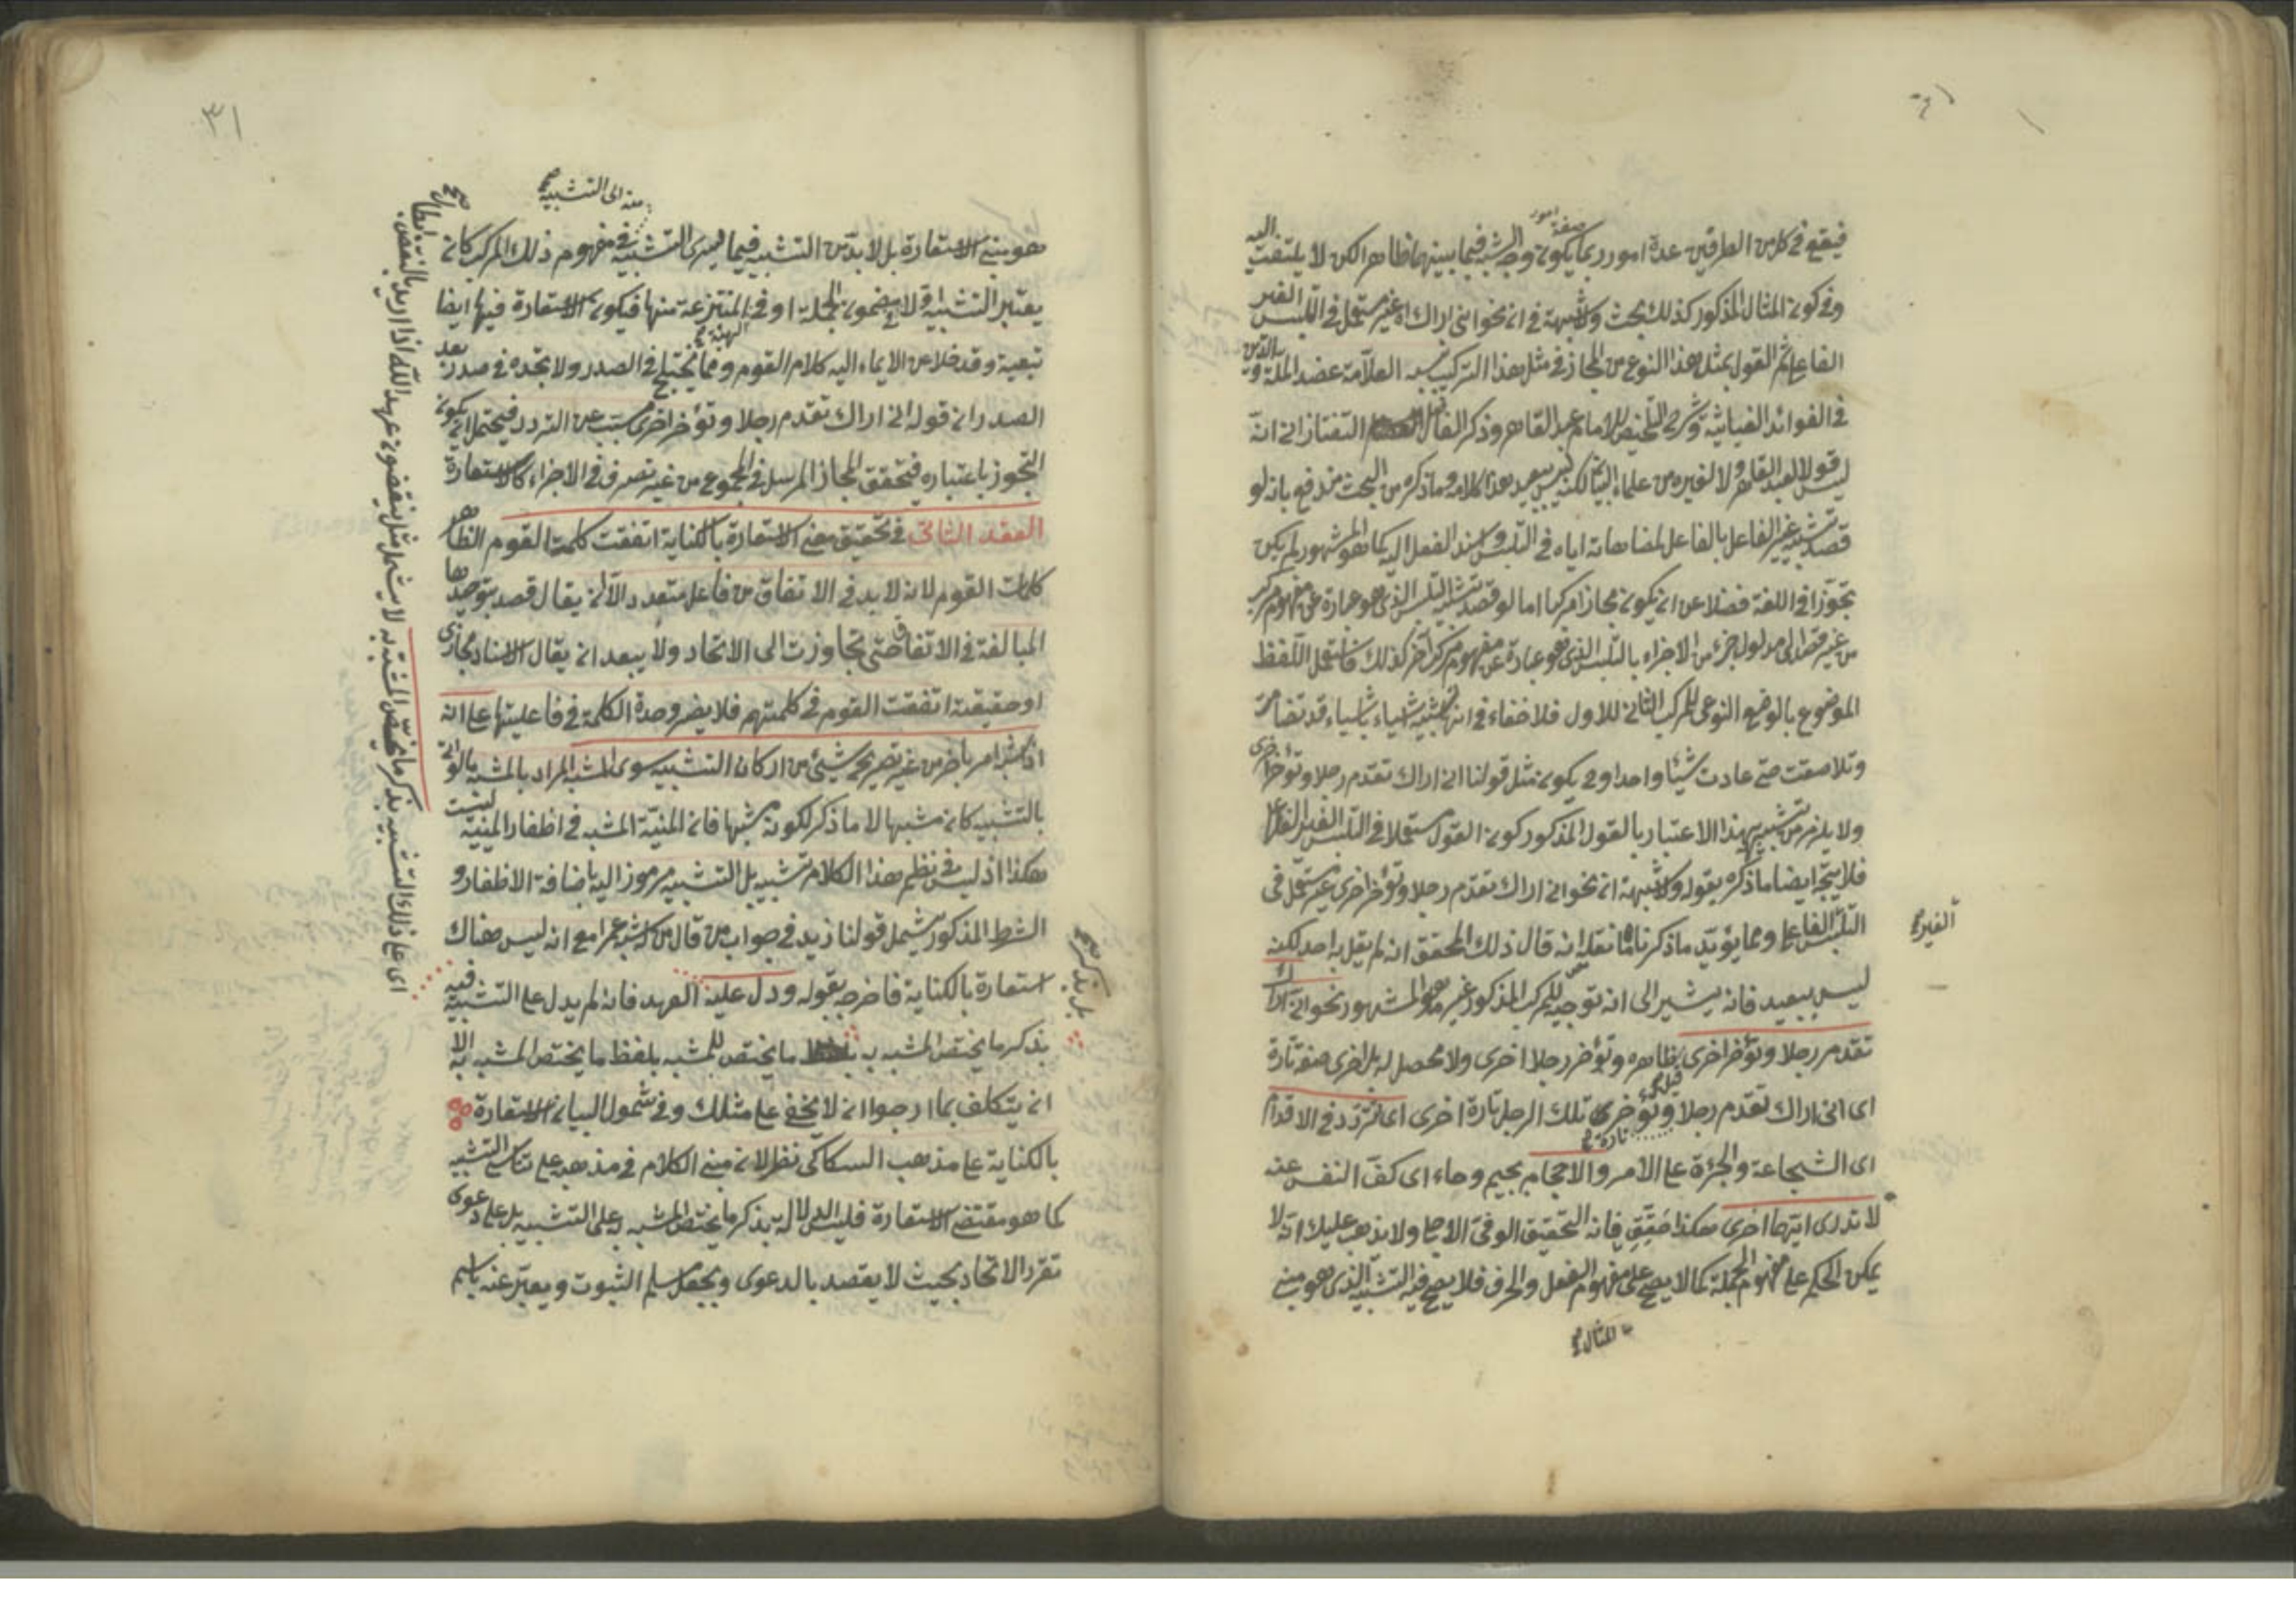 فيقع في كل من الطرفين عدة امور ربما يكون وجه الشبه فيما بينهما ظاهرا لكن لا يلتفت اليه
صفة امور
وفي كون المثال المذكور كذلك بحث ولا شبهة في ان نحو اني اراك اه غير مستعمل في التلبس الغير
الفاعلي ثم القول بمثل هذا النوع من المجاز في مثل هذا التركيب نسبه العلامة عضد الملة والدين
في الفوائد الغياثية وشرح التلخيص للامام عبد القاهر وذكر الفاضل التفتازاني انه
ليس قولا لعبد القاهر ولا لغيره من علماء البيان لكنه ليس ببعيد هذا كلامه وما ذكره من البحث مندفع بانه لو
قصد تشبيه غير الفاعل بالفاعل لمضاهاته اياه في التلبس واسند الفعل اليه كما هو المشهور لم يكن
تجوزا في اللغة فضلا عن ان يكون مجازا مركبا اما لو قصد تشبيه التلبس الذي هو عبارة عن مفهوم مركب
من غير قصد الى مدلول جزء من الاجزاء بالتلبس الذي هو عبارة عن مفهوم مركب آخر كذلك فاستعمل اللفظ
الموضوع بالوضع النوعي للمركب الثاني للاول فلا خفاء في انه تشبيه اشياء باشياء قد تضامت
وتلاصقت حتى عادت شيئا واحدا وح يكون مثل قولنا اني اراك تقدم رجلا وتؤخر اخرى
ولا يلزم من تشبيه بهذا الاعتبار بالقول المذكور كون القول مستعملا في التلبس الغير الفاعلي
فلا يتجه ايضا ما ذكره بقوله ولا شبهة ان نحو اني اراك تقدم رجلا وتؤخر اخرى غير مستعمل في
التلبس الفاعلي ومما يؤيد ما ذكرنا ما نقله انه قال ذلك المحقق انه لم يقل به احد لكنه
الغير صح
ليس ببعيد فانه يشير الى انه توجيه للمركب المذكور غير ما هو المشهور نحو اني اراك
تقدم رجلا وتؤخر اخرى ظاهره وتؤخر رجلا اخرى ولا محصل له بل اخرى صفة تارة
اى انى اراك تقدم رجلا وتؤخر تلك الرجل تارة اخرى اى تتردد في الاقدام
تارة صح
اى الشجاعة والجرءة على الامر والاحجام بجيم وحاء اى كف النفس عنه
لا تدرى ايتهما اخرى هكذا حقق فانه التحقيق الوفى الاحجا ولا يذهب عليك انه لا
يمكن الحكم على مفهوم الجملة كما لا يصح على مفهوم الفعل والحرف فلا يصح فيه التشبيه الذى هو مبنى
المثال صح
٣١
منه الى التشبيه صح
هو مبنى الاستعارة بل لا بد من التشبيه فيما يسرى التشبيه في مفهوم ذلك المركب كان
يعتبر التشبيه اولا في مضمون الجملة او في المنتزعة منها فيكون الاستعارة فيها ايضا
الهيئة صح
تبعية وقد خلا عن الايماء اليه كلام القوم ومما يختلج في الصدر ولا تجده في صدر بعد
الصدر ان قوله انى اراك تقدم رجلا وتؤخر اخرى مسبب عن التردد فيحتمل ان يكون
التجوز باعتباره فتحقق المجاز المرسل في المجموع من غير تصرف في الاجزاء كالاستعارة
العقد الثانى في تحقيق معنى الاستعارة بالكناية اتفقت كلمة القوم الظاهر
كلمات القوم لانه لا بد في الاتفاق من فاعل متعدد الا ان يقال قصد بتوحيدها
المبالغة في الاتفاق حتى تجاوزت الى الاتحاد ولا يبعد ان يقال الاسناد مجازى
او حقيقته اتفقت القوم في كلمتهم فلا يضر وحدة الكلمة في فاعليتها على انه
اذا شبه امر بآخر من غير تصريح بشئ من اركان التشبيه سوى المشبه المراد بالمشبه بالواقع
بالتشبيه كان مشبها لا ما ذكر لكونه مشبها فان المنية المشبه في اظفار المنية نشبت
هكذا اذ ليس في نظم هذا الكلام تشبيه بل التشبيه مرموز اليه باضافة الاظفار و
الشرط المذكور يشمل قولنا زيد في جواب من قال من كان يشبه عمرا مع انه ليس هناك
استعارة بالكناية فاخرجه بقوله ودل عليه العهد فانه لم يدل على التشبيه فيه
بل بذكر صح
بذكر ما يختص المشبه به ما يختص للمشبه بلفظ ما يختص المشبه به الا
ان يتكلف بما ارجوا ان لا يخفى على مثلك وفي شمول البيان الاستعارة
بالكناية على مذهب السكاكى نظر لان مبنى الكلام في مذهبه على تناسى التشبيه
كما هو مقتضى الاستعارة فليس الدلالة بذكر ما يختص المشبه به على التشبيه بل على دعوى
تقرر الاتحاد بحيث لا يقصد بالدعوى ويجعل مسلم الثبوت ويعبر عنه باسم
اى على ذلك التشبيه بذكر ما يختص المشبه به لا يشمل مثل ينقضون عهد الله اذا اريد بالنقض ابطال صح